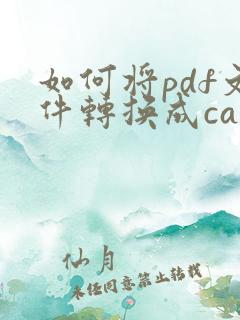 如何将pdf文
件轉換成ca
仙月
未经同意禁止转载